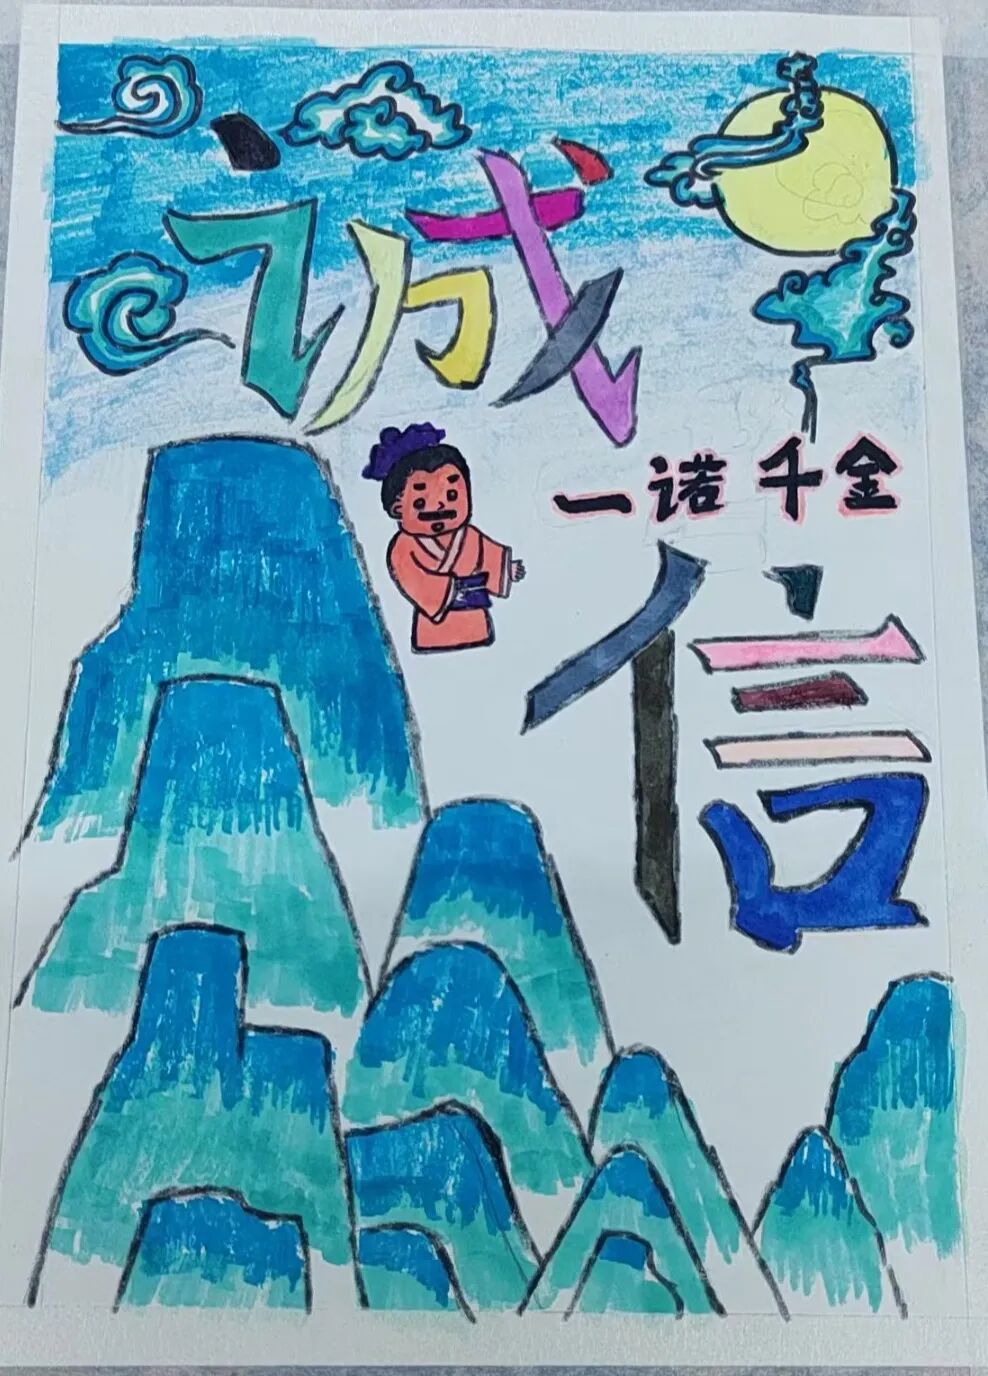 诚
一诺千金
信